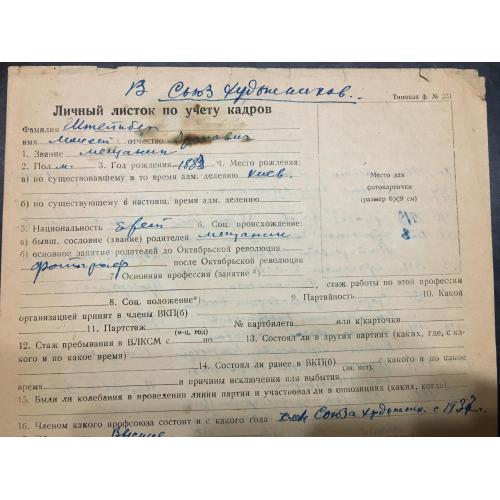 В Союз Художников.
Типовая ф. № 231
Личный листок по учету кадров
Фамилия Штейнберг
имя Моисей отчество
1. Звание мещанин
2. Пол м. 3. Год рождения 1883 4. Место рождения:
а) по существовавшему в то время адм. делению Киев.
б) по существующему в настоящ. время адм. делению
Место для
фотокарточки
(размер 6×9 см)
5. Национальность Еврей 6. Соц. происхождение:
а) бывш. сословие (звание) родителей мещанин
б) основное занятие родителей до Октябрьской революции
фотограф после Октябрьской революции
7. Основная профессия (занятие*)
стаж работы по этой профессии
8. Соц. положение*) 9. Партийность 10. Какой
организацией принят в члены ВКП(б)
11. Партстаж (м-ц, год) № партбилета или к/карточки
12. Стаж пребывания в ВЛКСМ с по 13. Состоял ли в других партиях (каких, где, с ка-
кого и по какое время)
14. Состоял ли ранее в ВКП(б) (да, нет), с какого и по какое
время и причины исключения или выбытия
15. Были ли колебания в проведении линии партии и участвовал ли в оппозициях (каких, когда)
16. Членом какого профсоюза состоит и с какого года член Союза художник. с 1937 г.
Высшее